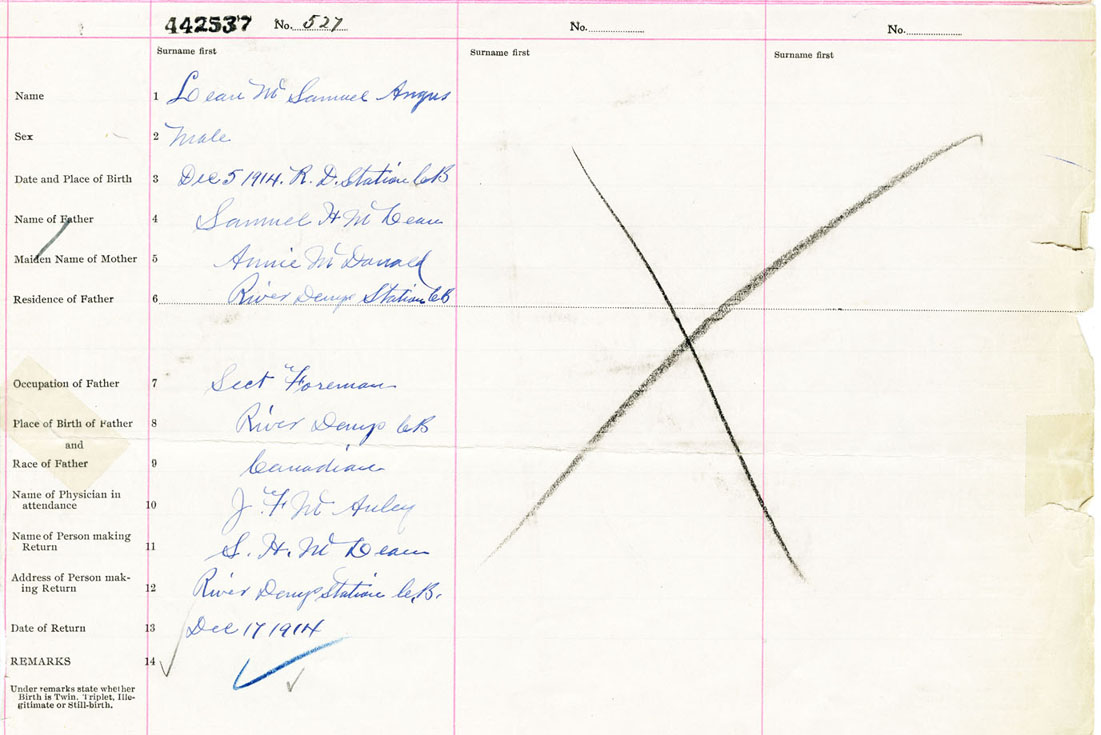 442537 No. 527 No. No.
Surname first Surname first Surname first
Name 1 Lean Mc Samuel Angus
Sex 2 Male
Date and Place of Birth 3 Dec 5 1914. R. D. Station C B
Name of Father 4 Samuel H Mc Lean
Maiden Name of Mother 5 Annie Mc Donald
Residence of Father 6 River Denys Station C B
Occupation of Father 7 Sect Foreman
Place of Birth of Father 8 River Denys C B
and
Race of Father 9 Canadian
Name of Physician in
attendance 10 J. F Mc Auley
Name of Person making
Return 11 S. H. Mc Lean
Address of Person mak-
ing Return 12 River Denys Station C. B.
Date of Return 13 Dec 17 1914
REMARKS 14
Under remarks state whether
Birth is Twin, Triplet, Ille-
gitimate or Still-birth.